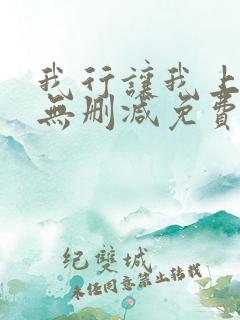 我行讓我上
無删减免費
紀雙城
未经同意禁止转载